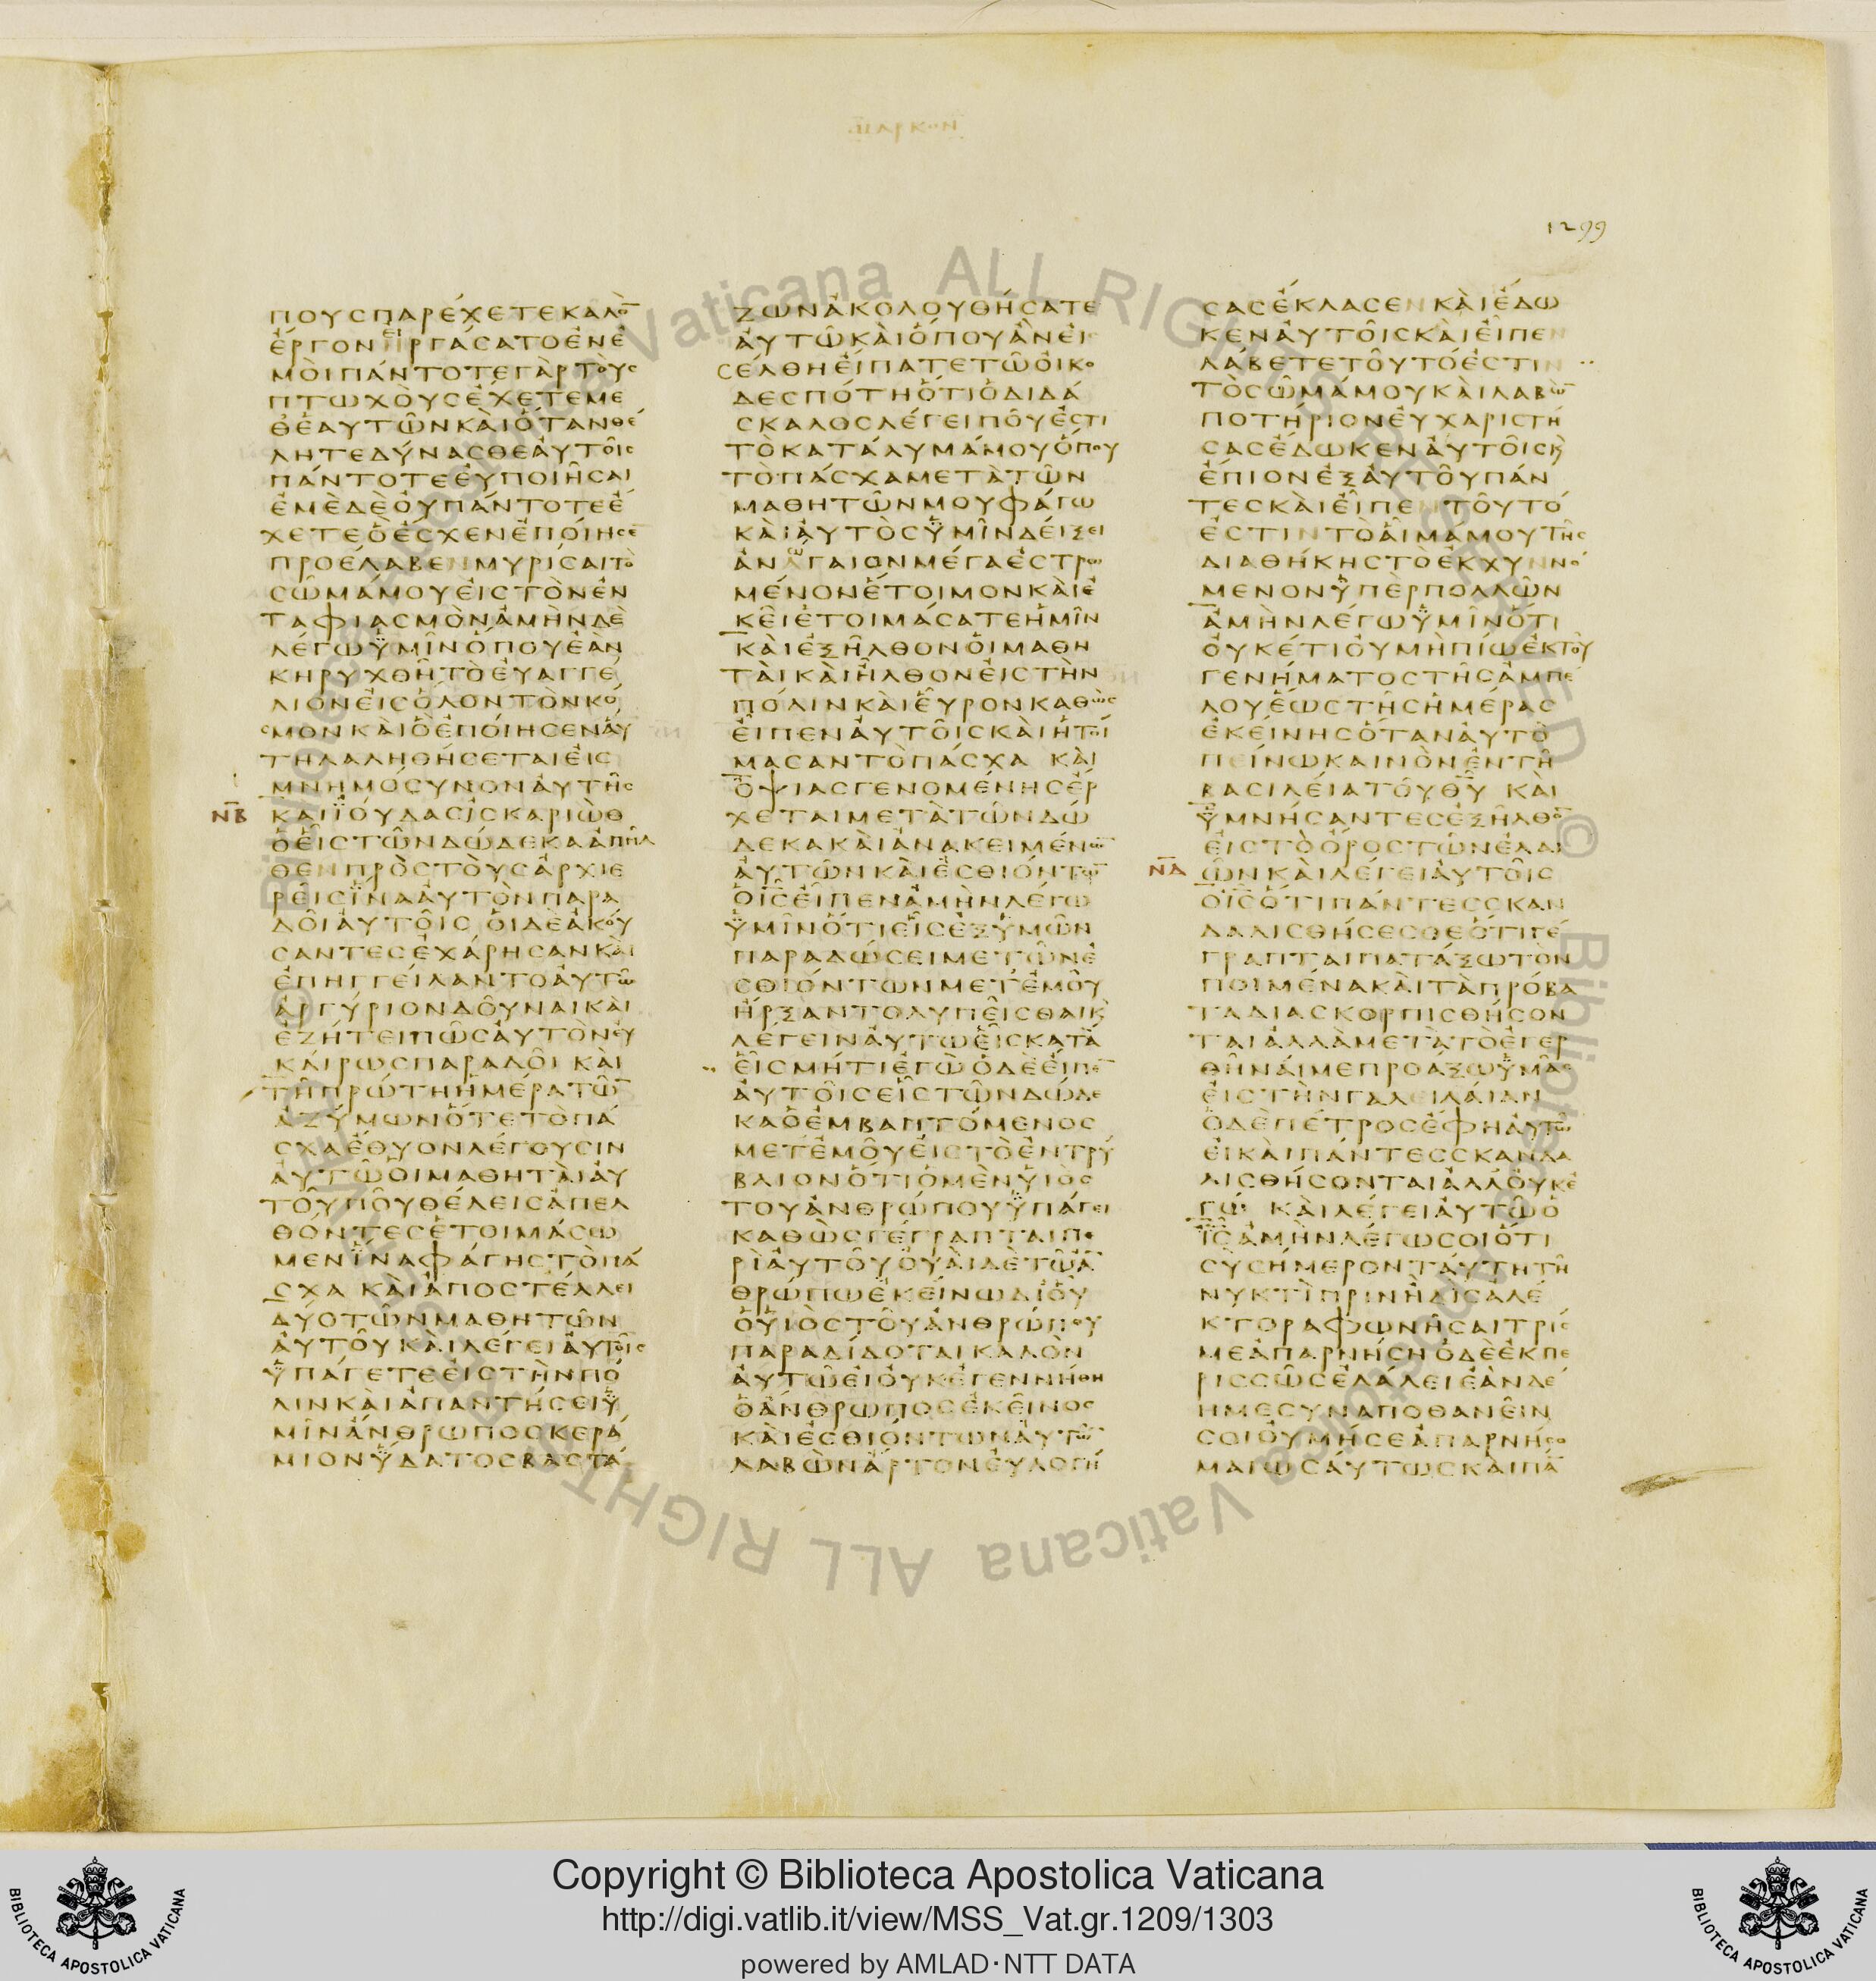 ΜΑΡΚΟΝ
1299
ΠΟΥCΠΑΡΕΧΕΤΕΚΑΛΟ̅
ΕΡΓΟΝΗΡΓΑCΑΤΟΕΝΕ
ΜΟΙΠΑΝΤΟΤΕΓΑΡΤΟΥC
ΠΤΩΧΟΥCΕΧΕΤΕΜΕ
ΘΕΑΥΤΩΝΚΑΙΟΤΑΝΘΕ
ΛΗΤΕΔΥΝΑCΘΕΑΥΤΟΙC
ΠΑΝΤΟΤΕΕΥΠΟΙΗCΑΙ
ΕΜΕΔΕΟΥΠΑΝΤΟΤΕΕ
ΧΕΤΕΟΕCΧΕΝΕΠΟΙΗCΕ
ΠΡΟΕΛΑΒΕΝΜΥΡΙCΑΙΤΟ
CΩΜΑΜΟΥΕΙCΤΟΝΕΝ
ΤΑΦΙΑCΜΟΝΑΜΗΝΔΕ
ΛΕΓΩΫΜΙΝΟΠΟΥΕΑΝ
ΚΗΡΥΧΘΗΤΟΕΥΑΓΓΕ
ΛΙΟΝΕΙCΟΛΟΝΤΟΝΚΟ
CΜΟΝΚΑΙΟΕΠΟΙΗCΕΝΑΥ
ΤΗΛΑΛΗΘΗCΕΤΑΙΕΙC
ΜΝΗΜΟCΥΝΟΝΑΥΤΗC
ΝΒ̅ ΚΑΙΪΟΥΔΑCΙCΚΑΡΙΩΘ
ΟΕΙCΤΩΝΔΩΔΕΚΑΑΠΗΛ
ΘΕΝΠΡΟCΤΟΥCΑΡΧΙΕ
ΡΕΙCΪΝΑΑΥΤΟΝΠΑΡΑ
ΔΟΙΑΥΤΟΙC ΟΙΔΕΑΚΟΥ
CΑΝΤΕCΕΧΑΡΗCΑΝΚΑΙ
ΕΠΗΓΓΕΙΛΑΝΤΟΑΥΤΩ
ΑΡΓΥΡΙΟΝΔΟΥΝΑΙΚΑΙ
ΕΖΗΤΕΙΠΩCΑΥΤΟΝΕΥ
ΚΑΙΡΩCΠΑΡΑΔΟΙ ΚΑΙ
ΤΗΠΡΩΤΗΗΜΕΡΑΤΩ̅
ΑΖΥΜΩΝΟΤΕΤΟΠΑ
CΧΑΕΘΥΟΝΛΕΓΟΥCΙΝ
ΑΥΤΩΟΙΜΑΘΗΤΑΙΑΥ
ΤΟΥΠΟΥΘΕΛΕΙCΑΠΕΛ
ΘΟΝΤΕCΕΤΟΙΜΑCΩ
ΜΕΝΪΝΑΦΑΓΗCΤΟΠΑ
CΧΑ ΚΑΙΑΠΟCΤΕΛΛΕΙ
ΔΥΟΤΩΝΜΑΘΗΤΩΝ
ΑΥΤΟΥΚΑΙΛΕΓΕΙΑΥΤΟΙC
ΫΠΑΓΕΤΕΕΙCΤΗΝΠΟ
ΛΙΝΚΑΙΑΠΑΝΤΗCΕΙΫ
ΜΙΝΑΝΘΡΩΠΟCΚΕΡΑ
ΜΙΟΝΫΔΑΤΟCΒΑCΤΑ
ΖΩΝΑΚΟΛΟΥΘΗCΑΤΕ
ΑΥΤΩΚΑΙΟΠΟΥΑΝΕΙ
CΕΛΘΗΕΙΠΑΤΕΤΩΟΙΚΟ
ΔΕCΠΟΤΗΟΤΙΟΔΙΔΑ
CΚΑΛΟCΛΕΓΕΙΠΟΥΕCΤΙ
ΤΟΚΑΤΑΛΥΜΑΜΟΥΟΠΟΥ
ΤΟΠΑCΧΑΜΕΤΑΤΩΝ
ΜΑΘΗΤΩΝΜΟΥΦΑΓΩ
ΚΑΙΑΥΤΟCΫΜΙΝΔΕΙΞΕΙ
ΑΝΑΓΑΙΟΝΜΕΓΑΕCΤΡΩ
ΜΕΝΟΝΕΤΟΙΜΟΝΚΑΙΕ
ΚΕΙΕΤΟΙΜΑCΑΤΕΗΜΙΝ
ΚΑΙΕΞΗΛΘΟΝΟΙΜΑΘΗ
ΤΑΙΚΑΙΗΛΘΟΝΕΙCΤΗΝ
ΠΟΛΙΝΚΑΙΕΥΡΟΝΚΑΘΩC
ΕΙΠΕΝΑΥΤΟΙCΚΑΙΗΤΟΙ
ΜΑCΑΝΤΟΠΑCΧΑ ΚΑΙ
ΟΨΙΑCΓΕΝΟΜΕΝΗCΕΡ
ΧΕΤΑΙΜΕΤΑΤΩΝΔΩ
ΔΕΚΑΚΑΙΑΝΑΚΕΙΜΕΝΩ̅
ΑΥΤΩΝΚΑΙΕCΘΙΟΝΤΩ̅
ΟΙ̅C̅ΕΙΠΕΝΑΜΗΝΛΕΓΩ
ΫΜΙΝΟΤΙΕΙCΕΞΥΜΩΝ
ΠΑΡΑΔΩCΕΙΜΕΤΩΝΕ
CΘΙΟΝΤΩΝΜΕΤΕΜΟΥ
ΗΡΞΑΝΤΟΛΥΠΕΙCΘΑΙΚ
ΛΕΓΕΙΝΑΥΤΩΕΙCΚΑΤΑ
ΕΙCΜΗΤΙΕΓΩΟΔΕΕΙΠΕ̅
ΑΥΤΟΙCΕΙCΤΩΝΔΩΔΕ
ΚΑΟΕΜΒΑΠΤΟΜΕΝΟC
ΜΕΤΕΜΟΥΕΙCΤΟΕΝΤΡΥ
ΒΛΙΟΝΟΤΙΟΜΕΝΫΙΟC
ΤΟΥΑΝΘΡΩΠΟΥΫΠΑΓΕΙ
ΚΑΘΩCΓΕΓΡΑΠΤΑΙΠΕ
ΡΙΑΥΤΟΥΟΥΑΙΔΕΤΩΑ̅
ΘΡΩΠΩΕΚΕΙΝΩΔΙΟΥ
ΟΥΙΟCΤΟΥΑΝΘΡΩΠΟΥ
ΠΑΡΑΔΙΔΟΤΑΙΚΑΛΟΝ
ΑΥΤΩΕΙΟΥΚΕΓΕΝΝΗΘΗ
ΟΑΝΘΡΩΠΟCΕΚΕΙΝΟC
ΚΑΙΕCΘΙΟΝΤΩΝΑΥΤΩ̅
ΛΑΒΩΝΑΡΤΟΝΕΥΛΟΓΗ
CΑCΕΚΛΑCΕΝΚΑΙΕΔΩ
ΚΕΝΑΥΤΟΙCΚΑΙΕΙΠΕΝ
ΛΑΒΕΤΕΤΟΥΤΟΕCΤΙΝ
ΤΟCΩΜΑΜΟΥΚΑΙΛΑΒΩ̅
ΠΟΤΗΡΙΟΝΕΥΧΑΡΙCΤΗ
CΑCΕΔΩΚΕΝΑΥΤΟΙCΚ
ΕΠΙΟΝΕΞΑΥΤΟΥΠΑΝ
ΤΕCΚΑΙΕΙΠΕΝΤΟΥΤΟ
ΕCΤΙΝΤΟΑΙΜΑΜΟΥΤΗC
ΔΙΑΘΗΚΗCΤΟΕΚΧΥΝΝΟ
ΜΕΝΟΝΫΠΕΡΠΟΛΛΩΝ
ΑΜΗΝΛΕΓΩΫΜΙΝΟΤΙ
ΟΥΚΕΤΙΟΥΜΗΠΙΩΕΚΤΟΥ
ΓΕΝΗΜΑΤΟCΤΗCΑΜΠΕ
ΛΟΥΕΩCΤΗCΗΜΕΡΑC
ΕΚΕΙΝΗCΟΤΑΝΑΥΤΟ
ΠΕΙΝΩΚΑΙΝΟΝΕΝΤΗ
ΒΑCΙΛΕΙΑΤΟΥΘ̅Υ̅ ΚΑΙ
ΫΜΝΗCΑΝΤΕCΕΞΗΛΘΟ̅
ΕΙCΤΟΟΡΟCΤΩΝΕΛΑΙ
ΝΔ̅ ΩΝΚΑΙΛΕΓΕΙΑΥΤΟΙC
ΟΙ̅C̅ΟΤΙΠΑΝΤΕCCΚΑΝ
ΔΑΛΙCΘΗCΕCΘΕΟΤΙΓΕ
ΓΡΑΠΤΑΙΠΑΤΑΞΩΤΟΝ
ΠΟΙΜΕΝΑΚΑΙΤΑΠΡΟΒΑ
ΤΑΔΙΑCΚΟΡΠΙCΘΗCΟΝ
ΤΑΙΑΛΛΑΜΕΤΑΤΟΕΓΕΡ
ΘΗΝΑΙΜΕΠΡΟΑΞΩΫΜΑC
ΕΙCΤΗΝΓΑΛΕΙΛΑΙΑΝ
ΟΔΕΠΕΤΡΟCΕΦΗΑΥΤΩ
ΕΙΚΑΙΠΑΝΤΕCCΚΑΝΔΑ
ΛΙCΘΗCΟΝΤΑΙΑΛΛΟΥΚΕ
ΓΩ ΚΑΙΛΕΓΕΙΑΥΤΩΟ
Ι̅C̅ΑΜΗΝΛΕΓΩCΟΙΟΤΙ
CΥCΗΜΕΡΟΝΤΑΥΤΗΤΗ
ΝΥΚΤΙΠΡΙΝΗΔΙCΑΛΕ
ΚΤΟΡΑΦΩΝΗCΑΙΤΡΙC
ΜΕΑΠΑΡΝΗCΗΟΔΕΕΚΠΕ
ΡΙCCΩCΕΛΑΛΕΙΕΑΝΔΕ
ΗΜΕCΥΝΑΠΟΘΑΝΕΙΝ
CΟΙΟΥΜΗCΕΑΠΑΡΝΗCΟ
ΜΑΙΩCΑΥΤΩCΚΑΙΠΑ̅
Copyright © Biblioteca Apostolica Vaticana
http://digi.vatlib.it/view/MSS_Vat.gr.1209/1303
powered by AMLAD·NTT DATA
BIBLIOTECA APOSTOLICA VATICANA
BIBLIOTECA APOSTOLICA VATICANA
© Biblioteca Apostolica Vaticana ALL RIGHTS RESERVED
© Biblioteca Apostolica Vaticana ALL RIGHTS RESERVED